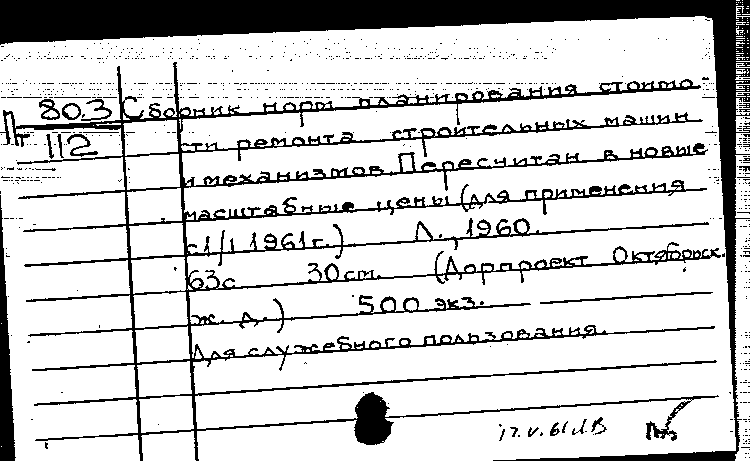 Пт 80.3
112
Сборник норм планирования стоимо-
сти ремонта строительных машин
и механизмов. Пересчитан в новые
масштабные цены (для применения
с 1/I 1961г.) Л., 1960.
63с 30см. (Дорпроект Октябрьск.
ж. д.) 500 экз.
Для служебного пользования.
17.V.61